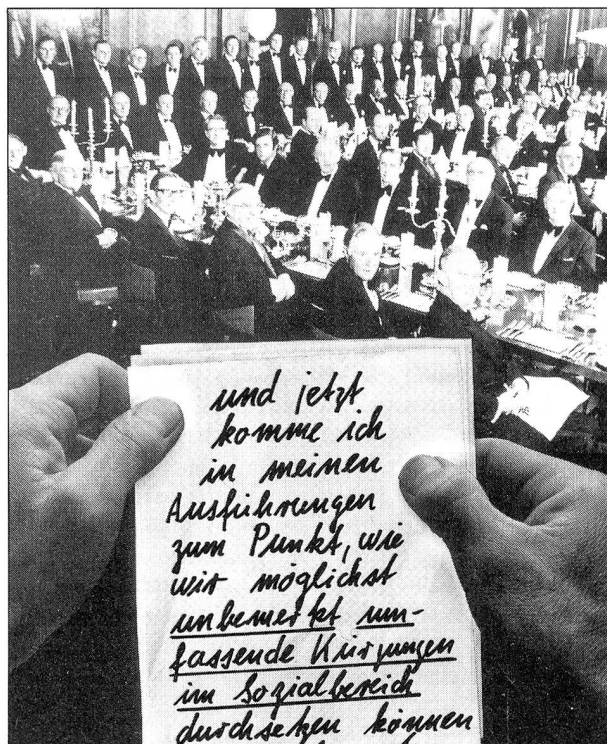 und jetzt
komme ich
in meinen
Ausführungen
zum Punkt, wie
wir möglichst
unbemerkt um-
fassende Kürzungen
im Sozialbereich
durchsetzen können